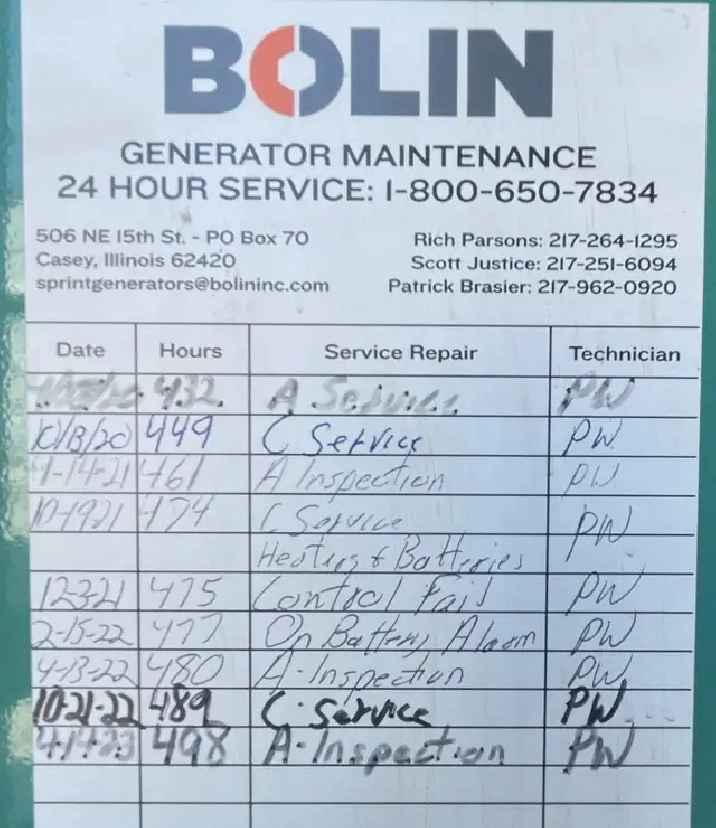 BOLIN
GENERATOR MAINTENANCE
24 HOUR SERVICE: 1-800-650-7834
506 NE 15th St. - PO Box 70
Casey, Illinois 62420
sprintgenerators@bolininc.com
Rich Parsons: 217-264-1295
Scott Justice: 217-251-6094
Patrick Brasier: 217-962-0920
Date Hours Service Repair Technician
432 A Service PW
449 C Service PW
4-14-21 461 A Inspection PW
10-1921 474 C Service PW
Heaters & Batteries
12-3-21 475 Control Fail PW
2-15-22 477 On Battery Alarm PW
4-13-22 480 A-Inspection PW
10-21-22 489 C-Service PW
498 A-Inspection PW